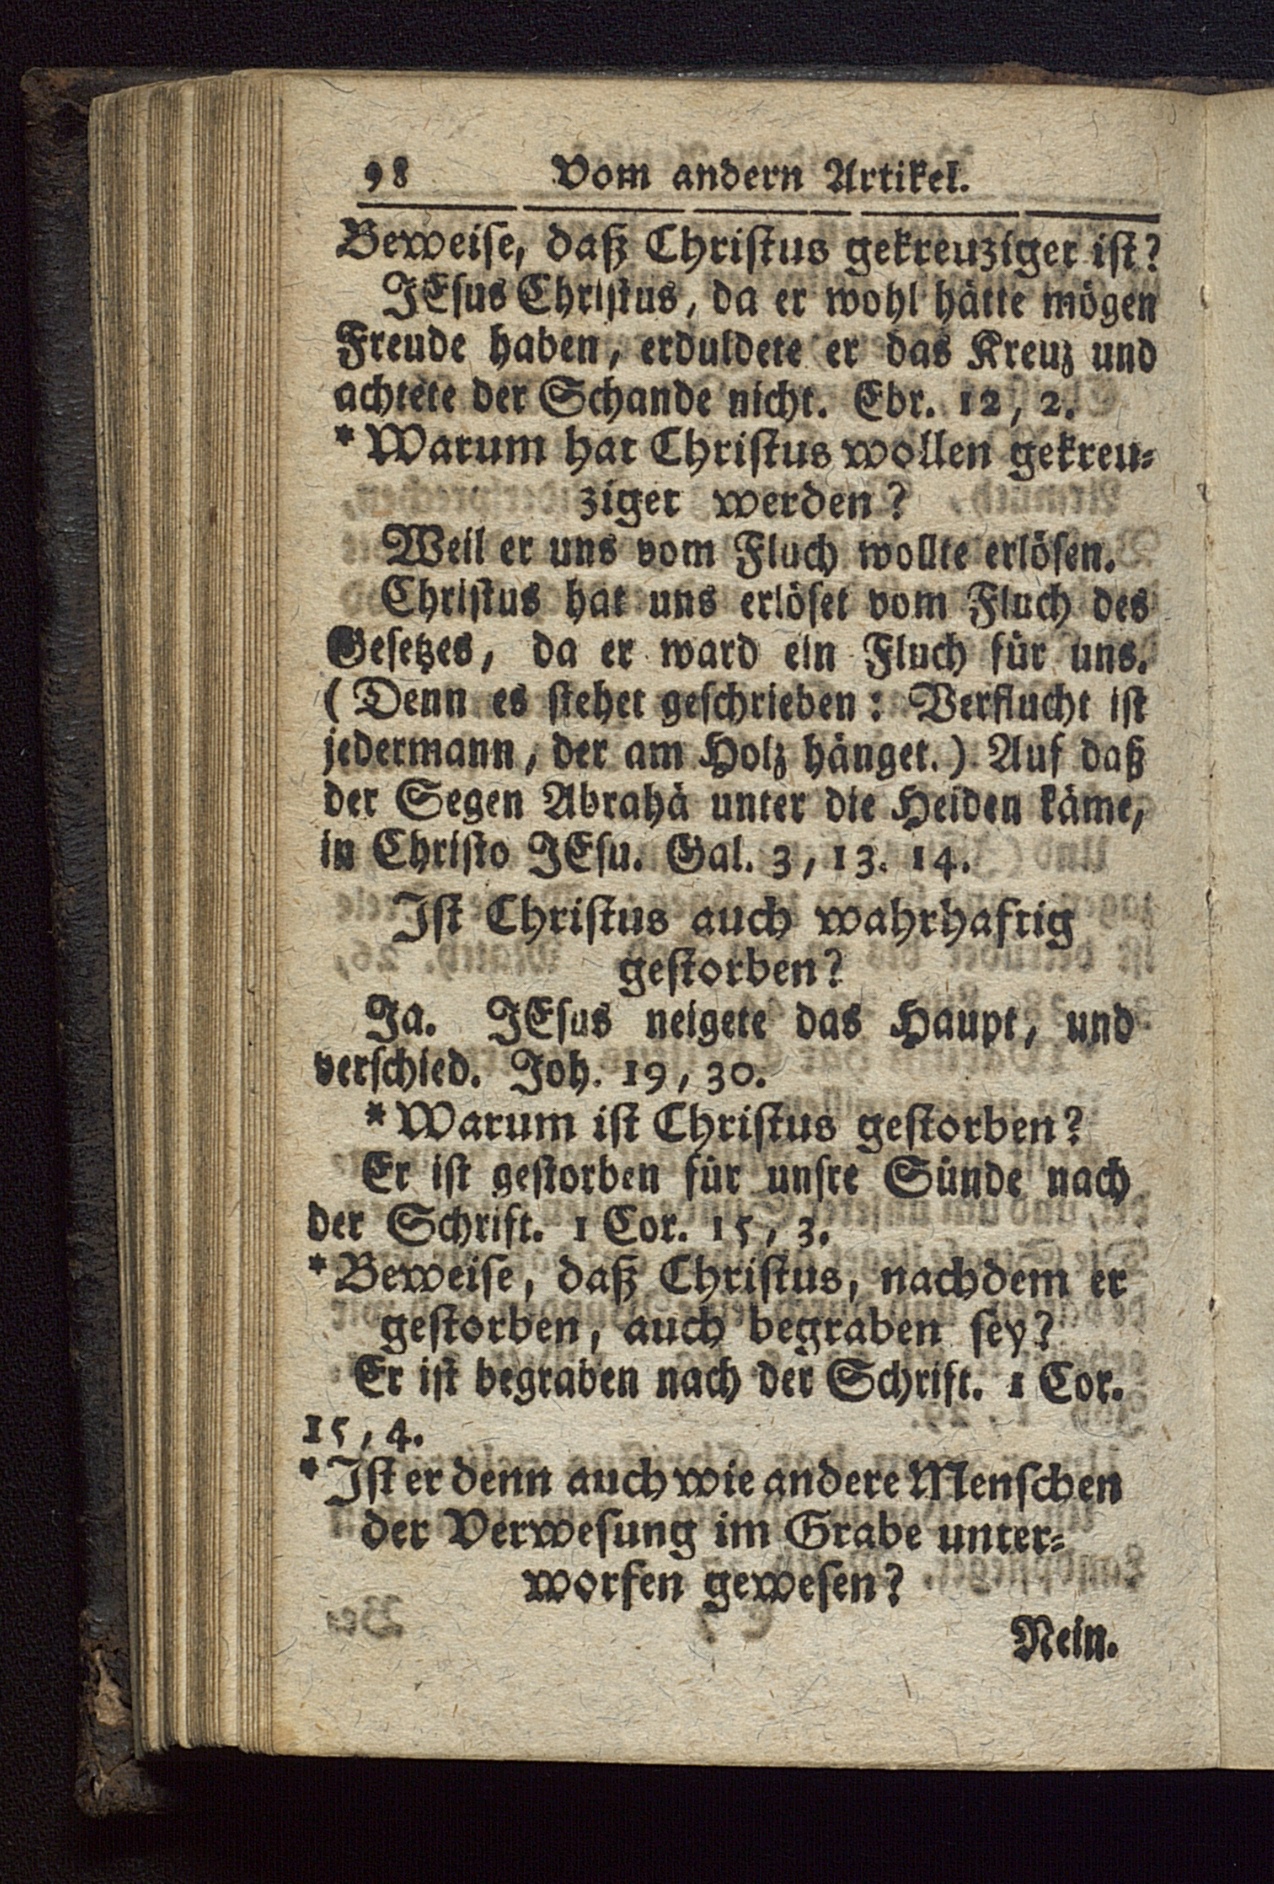 98 Vom andern Artikel.
Beweise, daß Christus gekreuziget ist?
JEsus Christus, da er wohl hätte mögen
Freude haben, erduldete er das Kreuz und
achtete der Schande nicht. Ebr. 12, 2.
* Warum hat Christus wollen gekreu-
ziget werden?
Weil er uns vom Fluch wollte erlösen.
Christus hat uns erlöset vom Fluch des
Gesetzes, da er ward ein Fluch für uns.
(Denn es stehet geschrieben: Verflucht ist
jedermann, der am Holz hänget.) Auf daß
der Segen Abrahä unter die Heiden käme,
in Christo JEsu. Gal. 3, 13. 14.
Ist Christus auch wahrhaftig
gestorben?
Ja. JEsus neigete das Haupt, und
verschied. Joh. 19, 30.
* Warum ist Christus gestorben?
Er ist gestorben für unsre Sünde nach
der Schrift. 1 Cor. 15, 3.
* Beweise, daß Christus, nachdem er
gestorben, auch begraben sey?
Er ist begraben nach der Schrift. 1 Cor.
15, 4.
* Ist er denn auch wie andere Menschen
der Verwesung im Grabe unter-
worfen gewesen?
Nein.